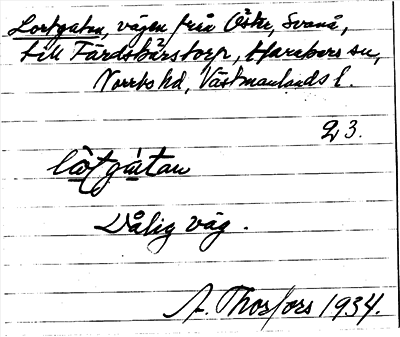 Lortgatan, vägen från Öster, Svanå,
till Färdskärstorp, Harakers sn,
Norrbo hd, Västmanlands l.
23.
lo̤ţgátan
Dålig väg.
A. Thorfors 1934.